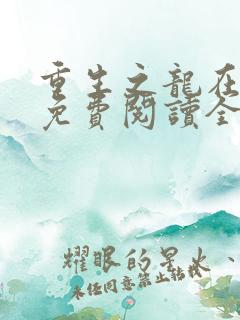 重生之龍在
免費閱讀全
耀眼的星火、
未经同意禁止转载